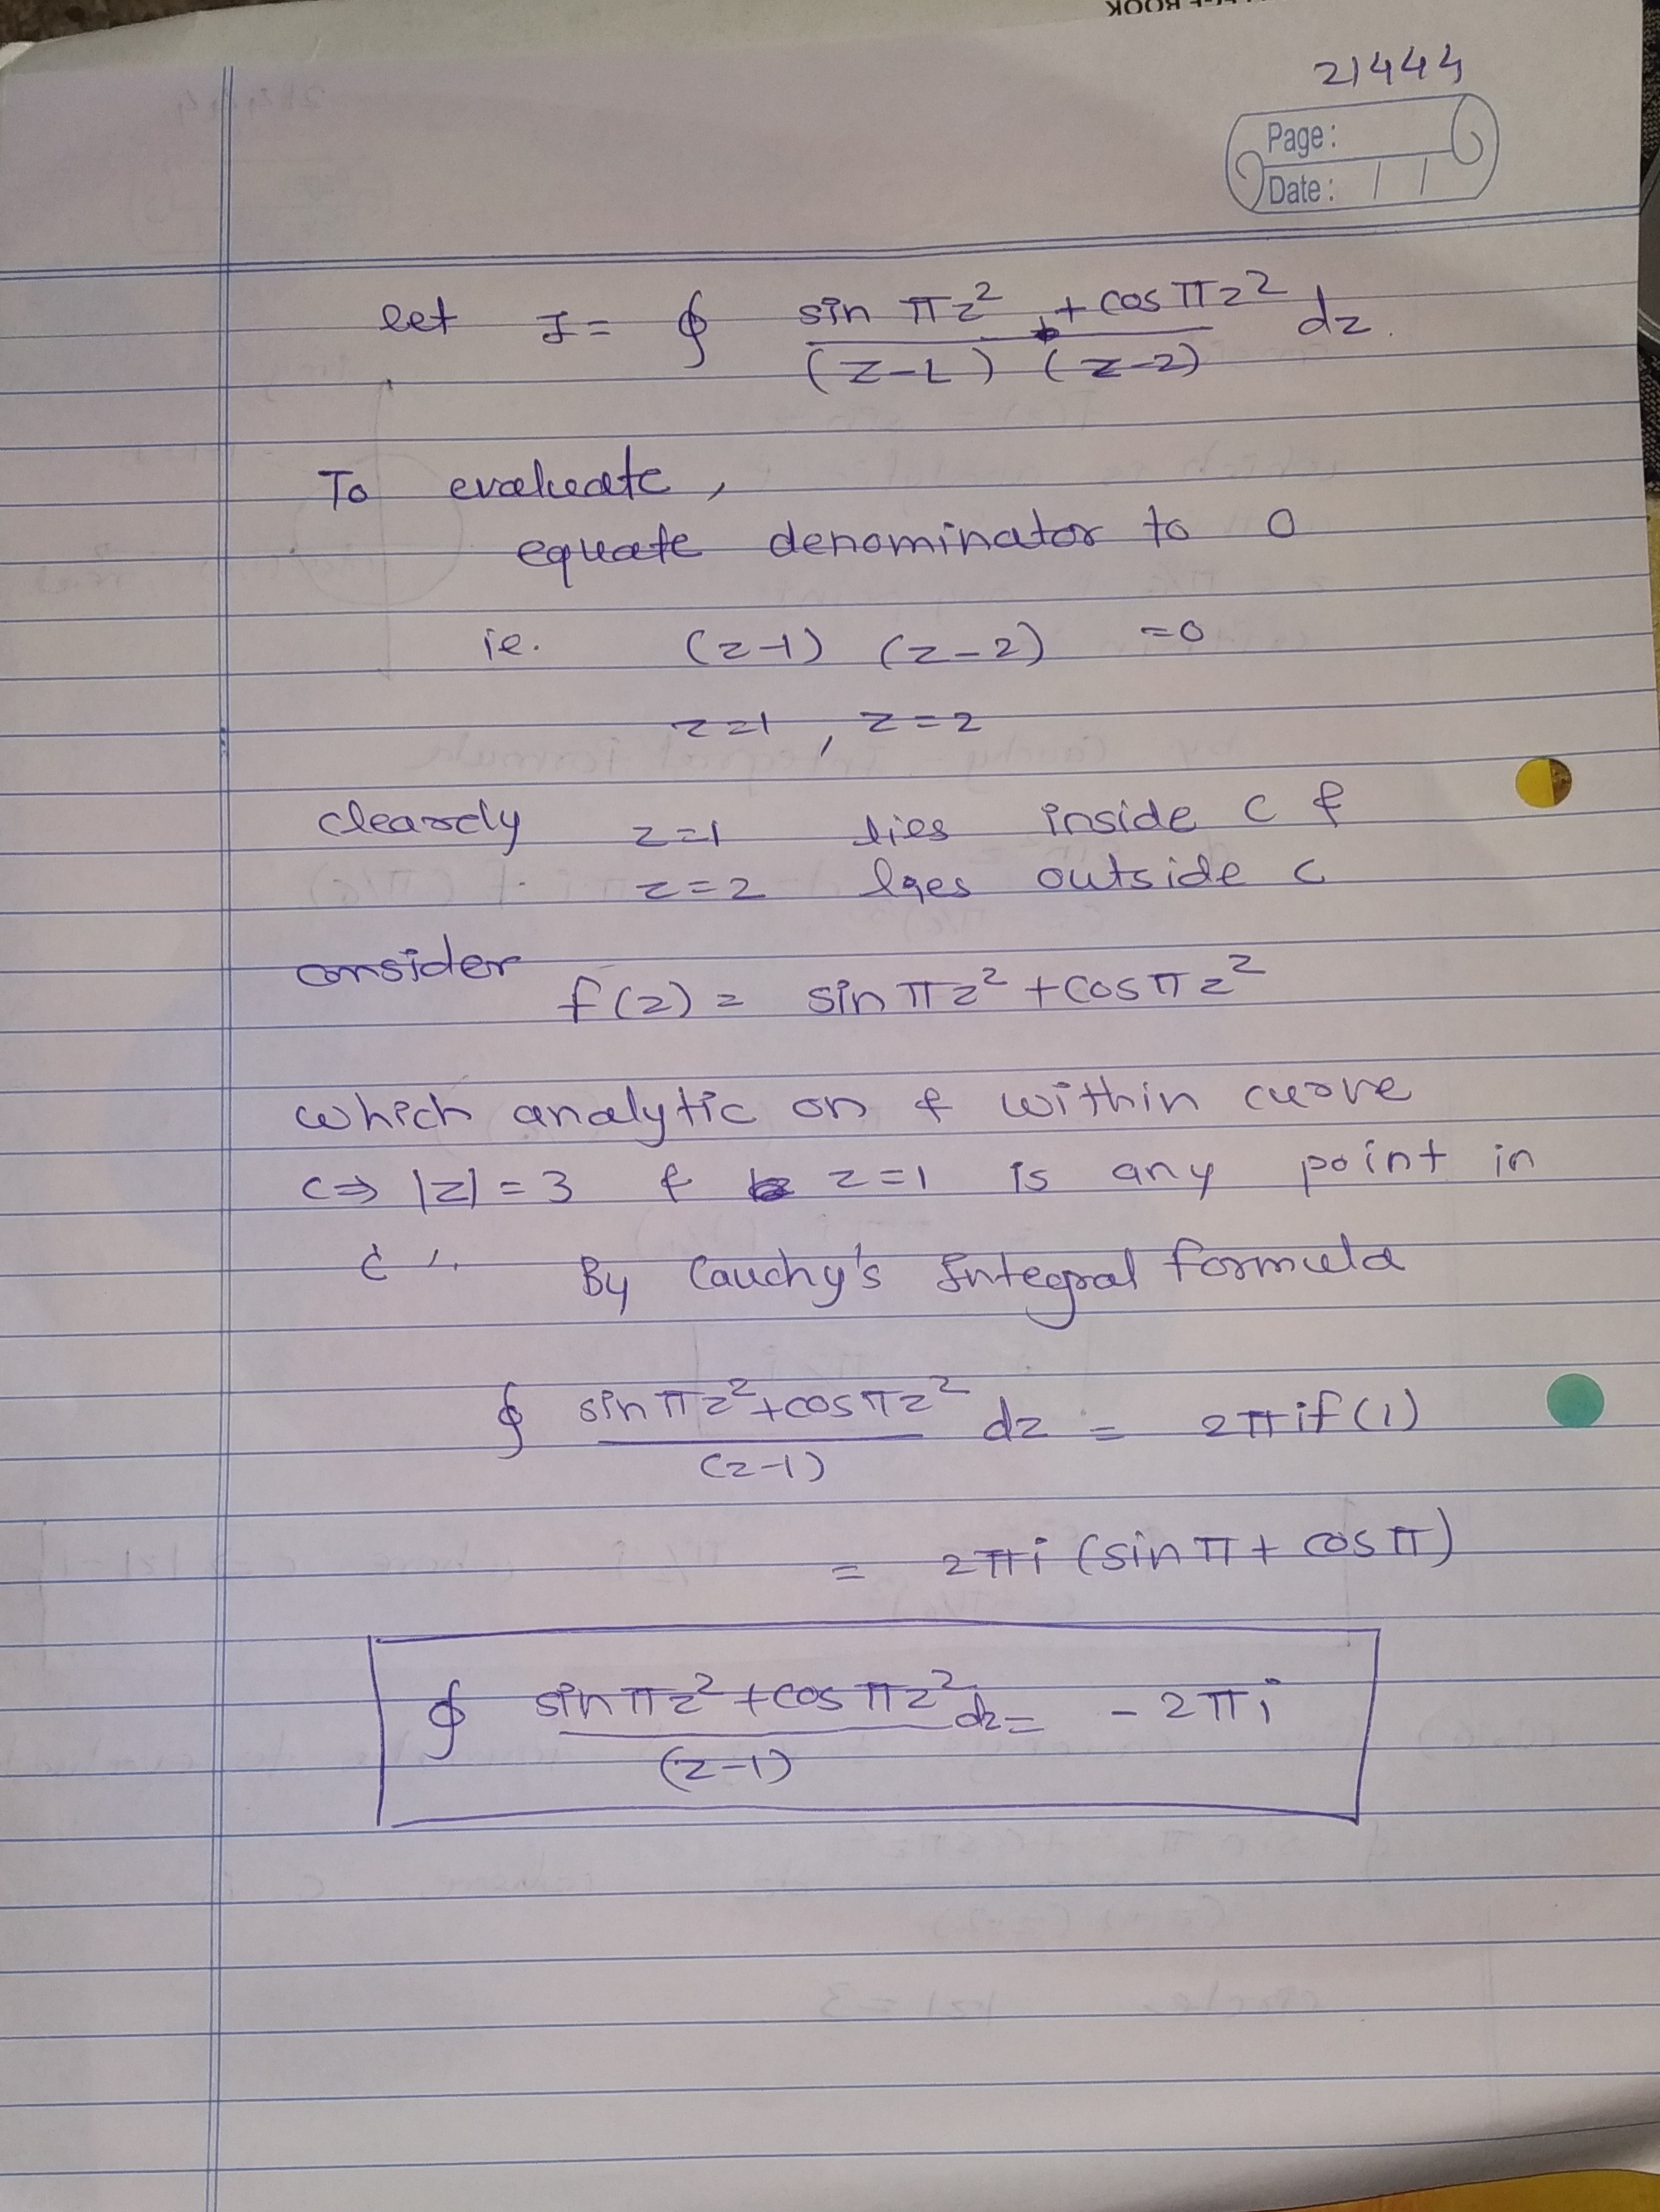 21444
Page:
Date: / /
let I = ∮ (sin πz² + cos πz²) / ((z-1) (z-2)) dz.
To evaluate,
equate denominator to 0
ie. (z-1) (z-2) =0
z=1, z=2
clearly z=1 lies inside C &
z=2 lies outside C
consider
f(z) = sin πz² + cos πz²
which analytic on & within curve
C⇒ |z| = 3 & z=1 is any point in
C ∴ By Cauchy's Integral formula
∮ (sin πz² + cos πz²) / (z-1) dz = 2πi f(1)
= 2πi (sin π + cos π)
∮ (sin πz² + cos πz²) / (z-1) dz = - 2πi